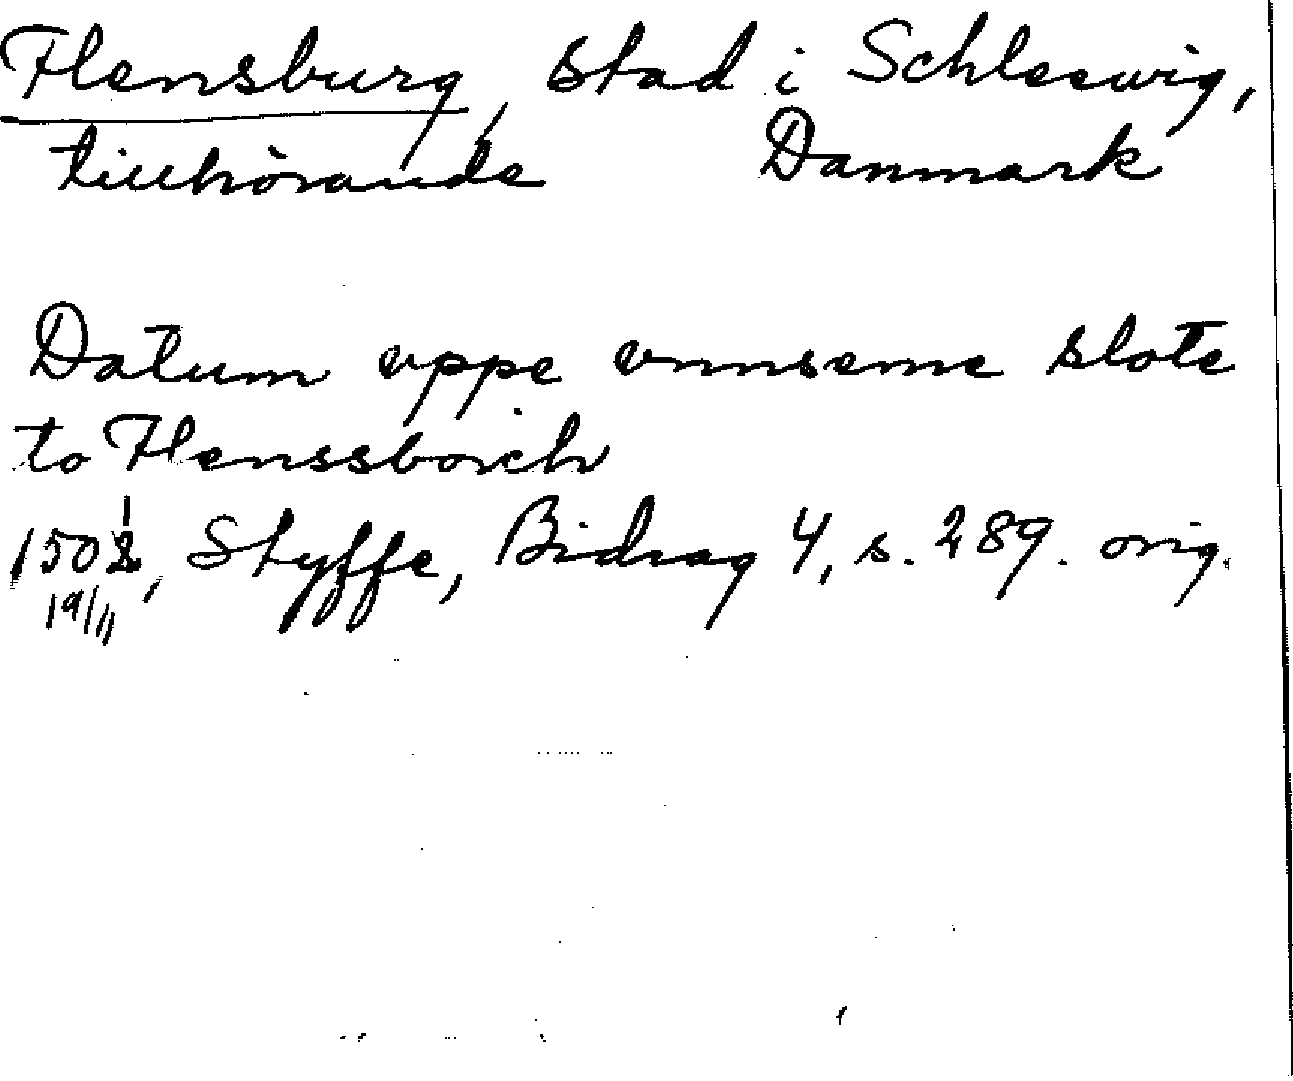 Flensburg, stad i Schleswig,
tillhörande Danmark
Datum vppe vnnseme slote
to Flenssborch
1501, Styffe, Bidrag 4, s. 289. orig.
19/11